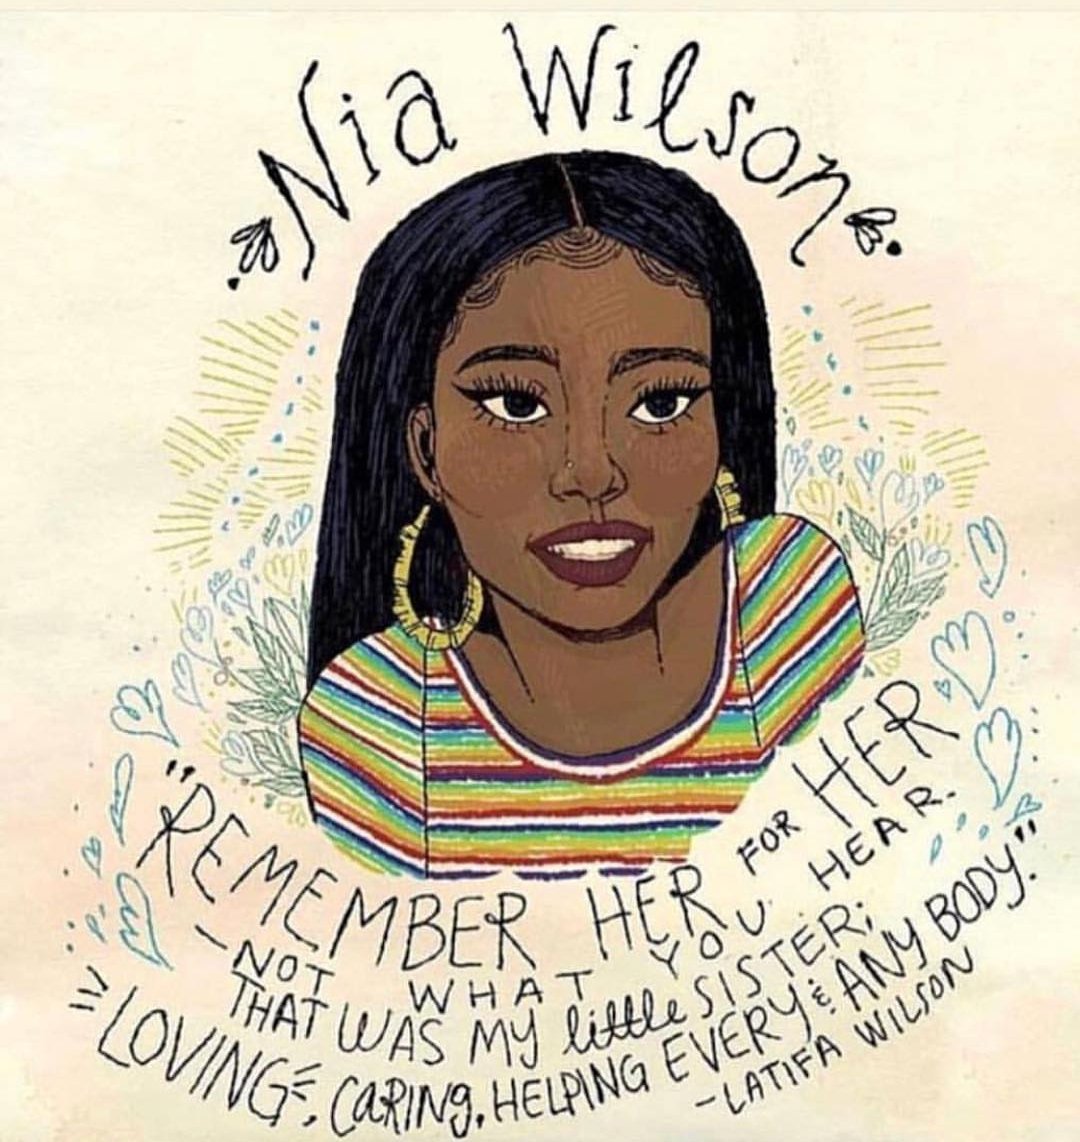 Nia Wilson
"REMEMBER HER FOR HER
- NOT WHAT YOU HEAR.
THAT WAS MY little SISTER;
LOVING, CARING, HELPING EVERY & ANY BODY."
- LATIFA WILSON